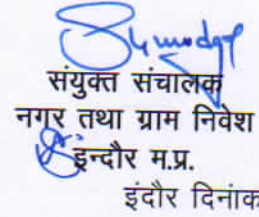 संयुक्त संचालक
नगर तथा ग्राम निवेश
इन्दौर म.प्र.
इंदौर दिनांक